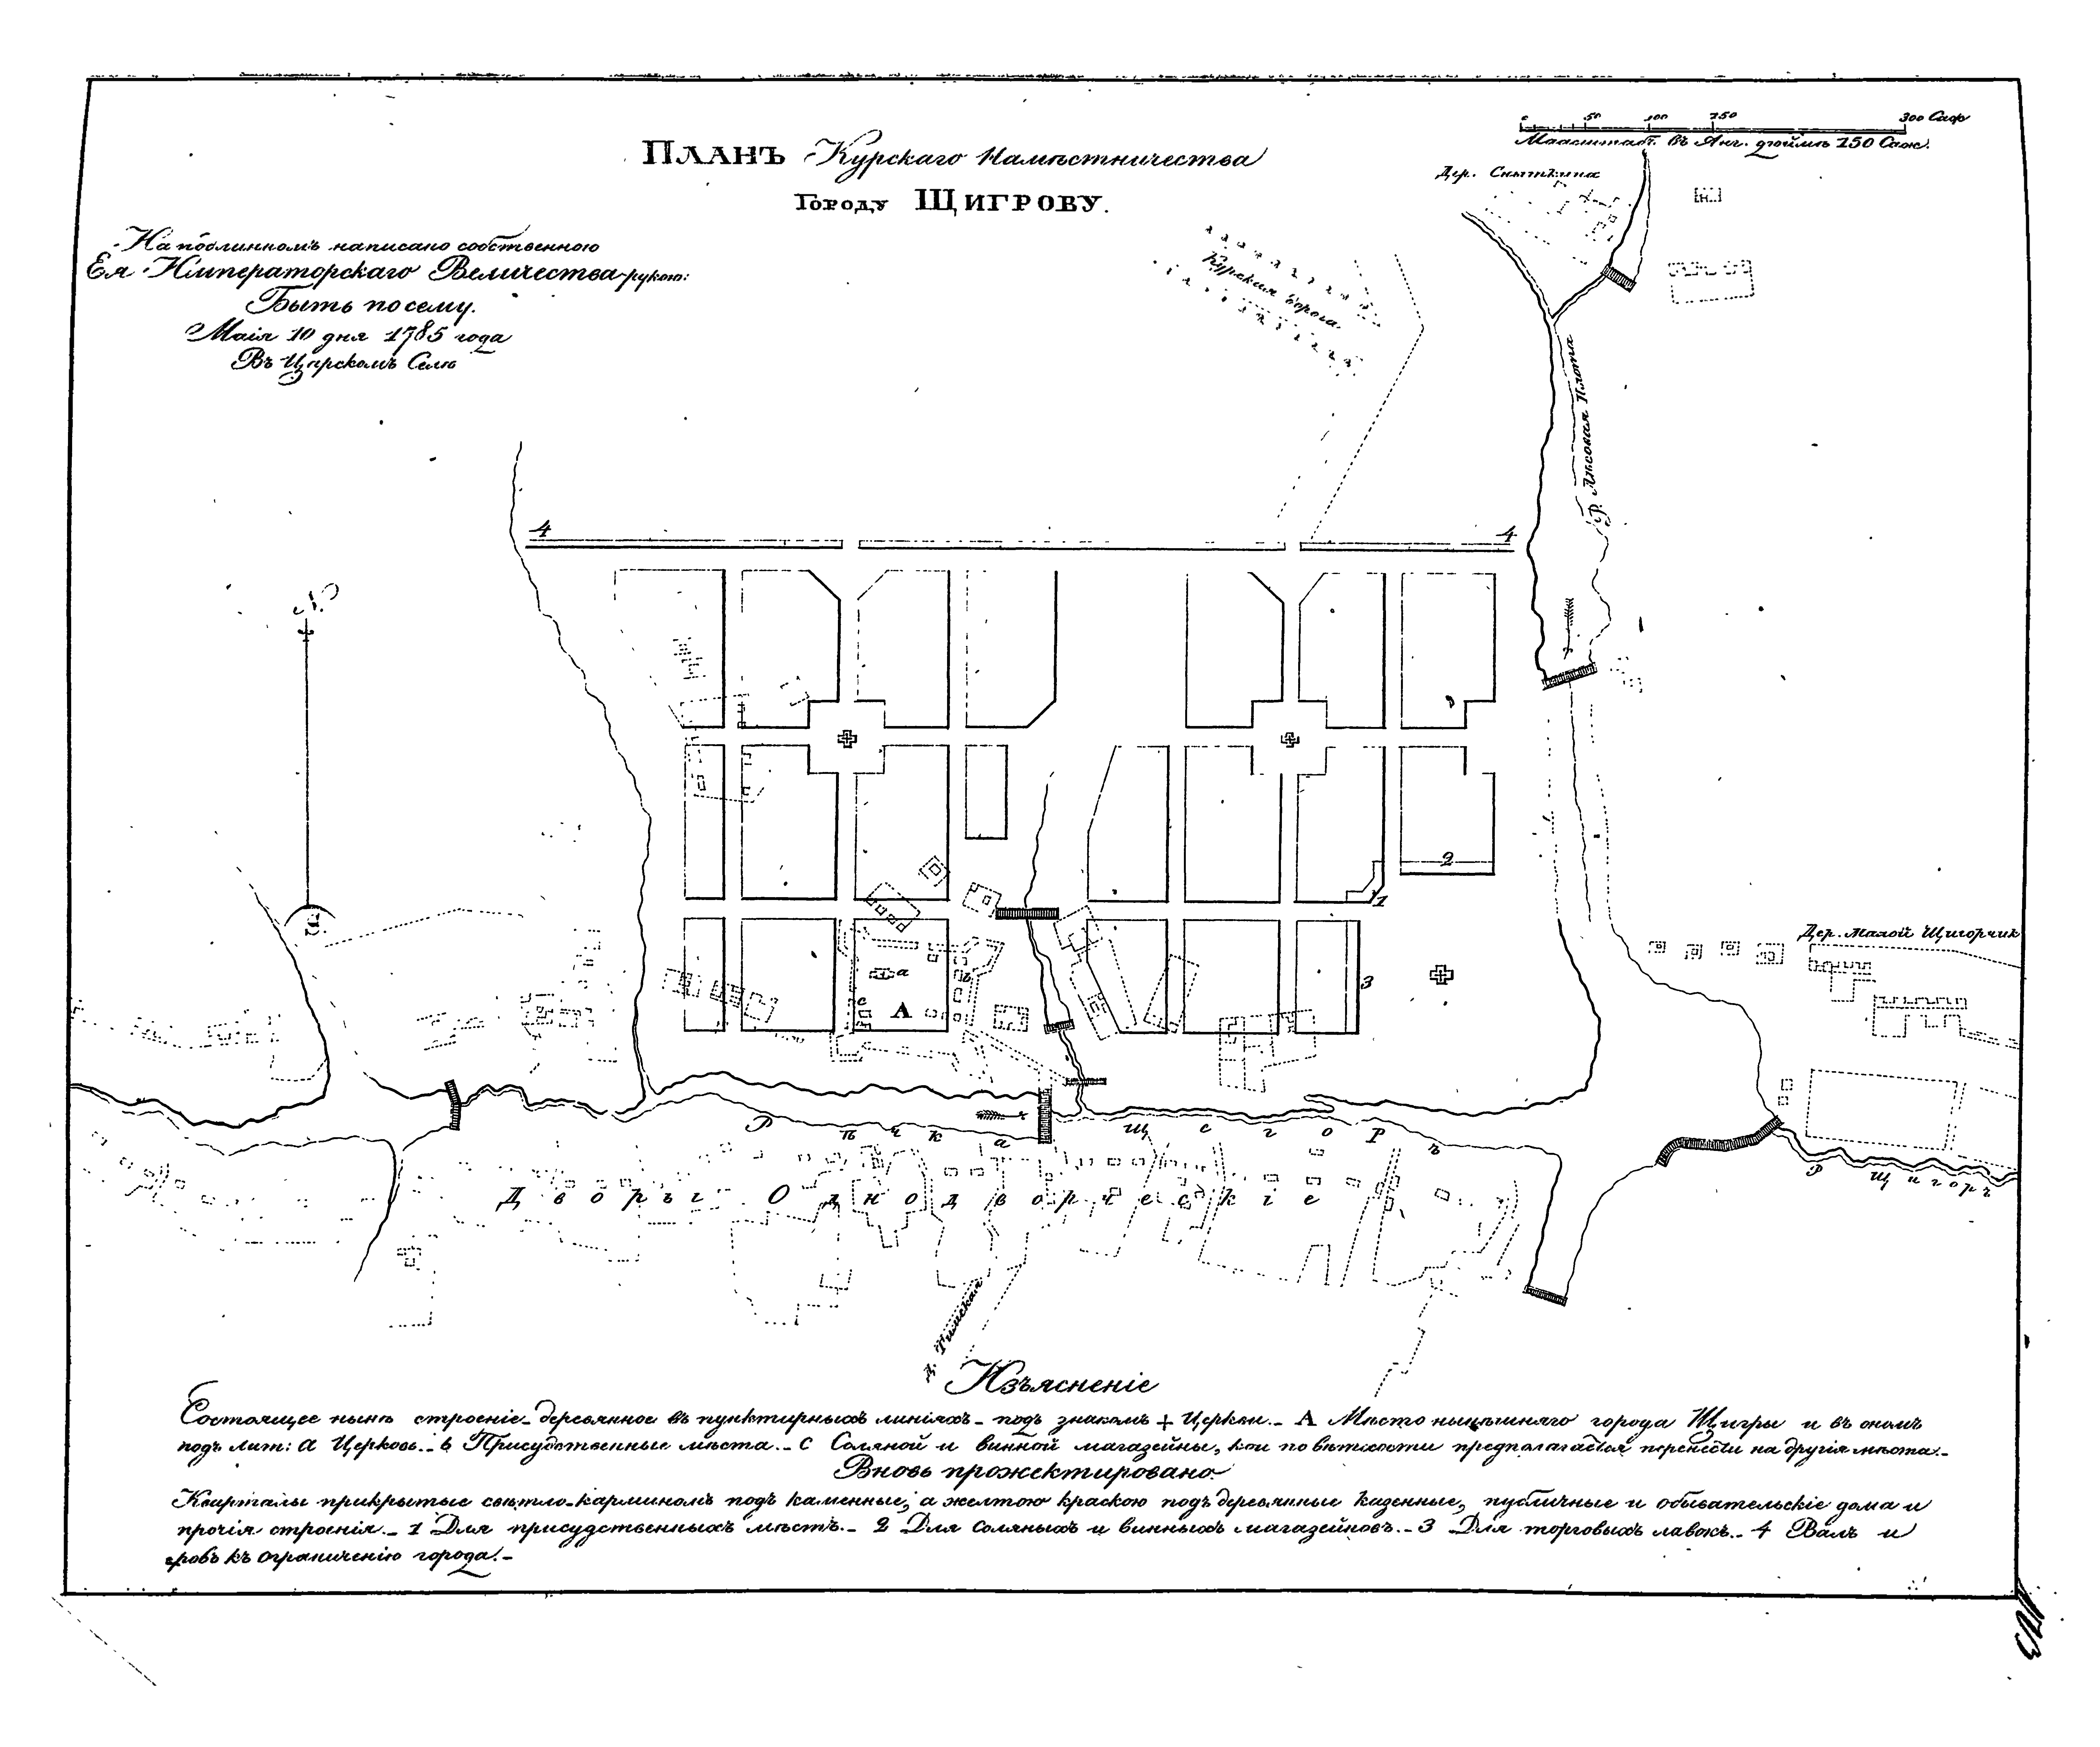 ПЛАНЪ Курскаго Намѣстничества
Городу ЩИГРОВУ.
0 50 100 150 300 Саж
Маасштабъ въ Анг. дюймѣ 150 Саж.
На подлинномъ написано собственною
Ея Императорскаго Величества рукою:
Быть по сему.
Маія 10 дня 1785 года
Въ Царскомъ Селѣ
Дер.
Курская дорога.
Р. Лѣсовая Плота
4
4
С.
Ю.
2
1
3
а
в
с
А
Дер. Малой Щигорчик
Рѣчка Щигоръ
Р Щигоръ
Дворы Однодворческіе
Д. Тимская
Изъясненіе
Состоящее нынѣ строеніе деревянное въ пунктирныхъ линіяхъ - подъ знакомъ + Церкви. - А Мѣсто нынѣшняго города Щигры и въ ономъ
подъ лит: а Церковь. - в Присудственные мѣста. - с Соляной и винной магазейны, кои по ветхости предполагается перенести на другія мѣста. -
Вновь прожектировано.
Кварталы прикрытые свѣтло-карминомъ подъ каменные, а желтою краскою подъ деревянные казенные, публичные и обывательскіе дома и
прочія строенія. - 1 Для присудственныхъ мѣстъ. - 2 Для соляныхъ и винныхъ магазейновъ. - 3 Для торговыхъ лавокъ. - 4 Валъ и
ровъ къ ограниченію города. -